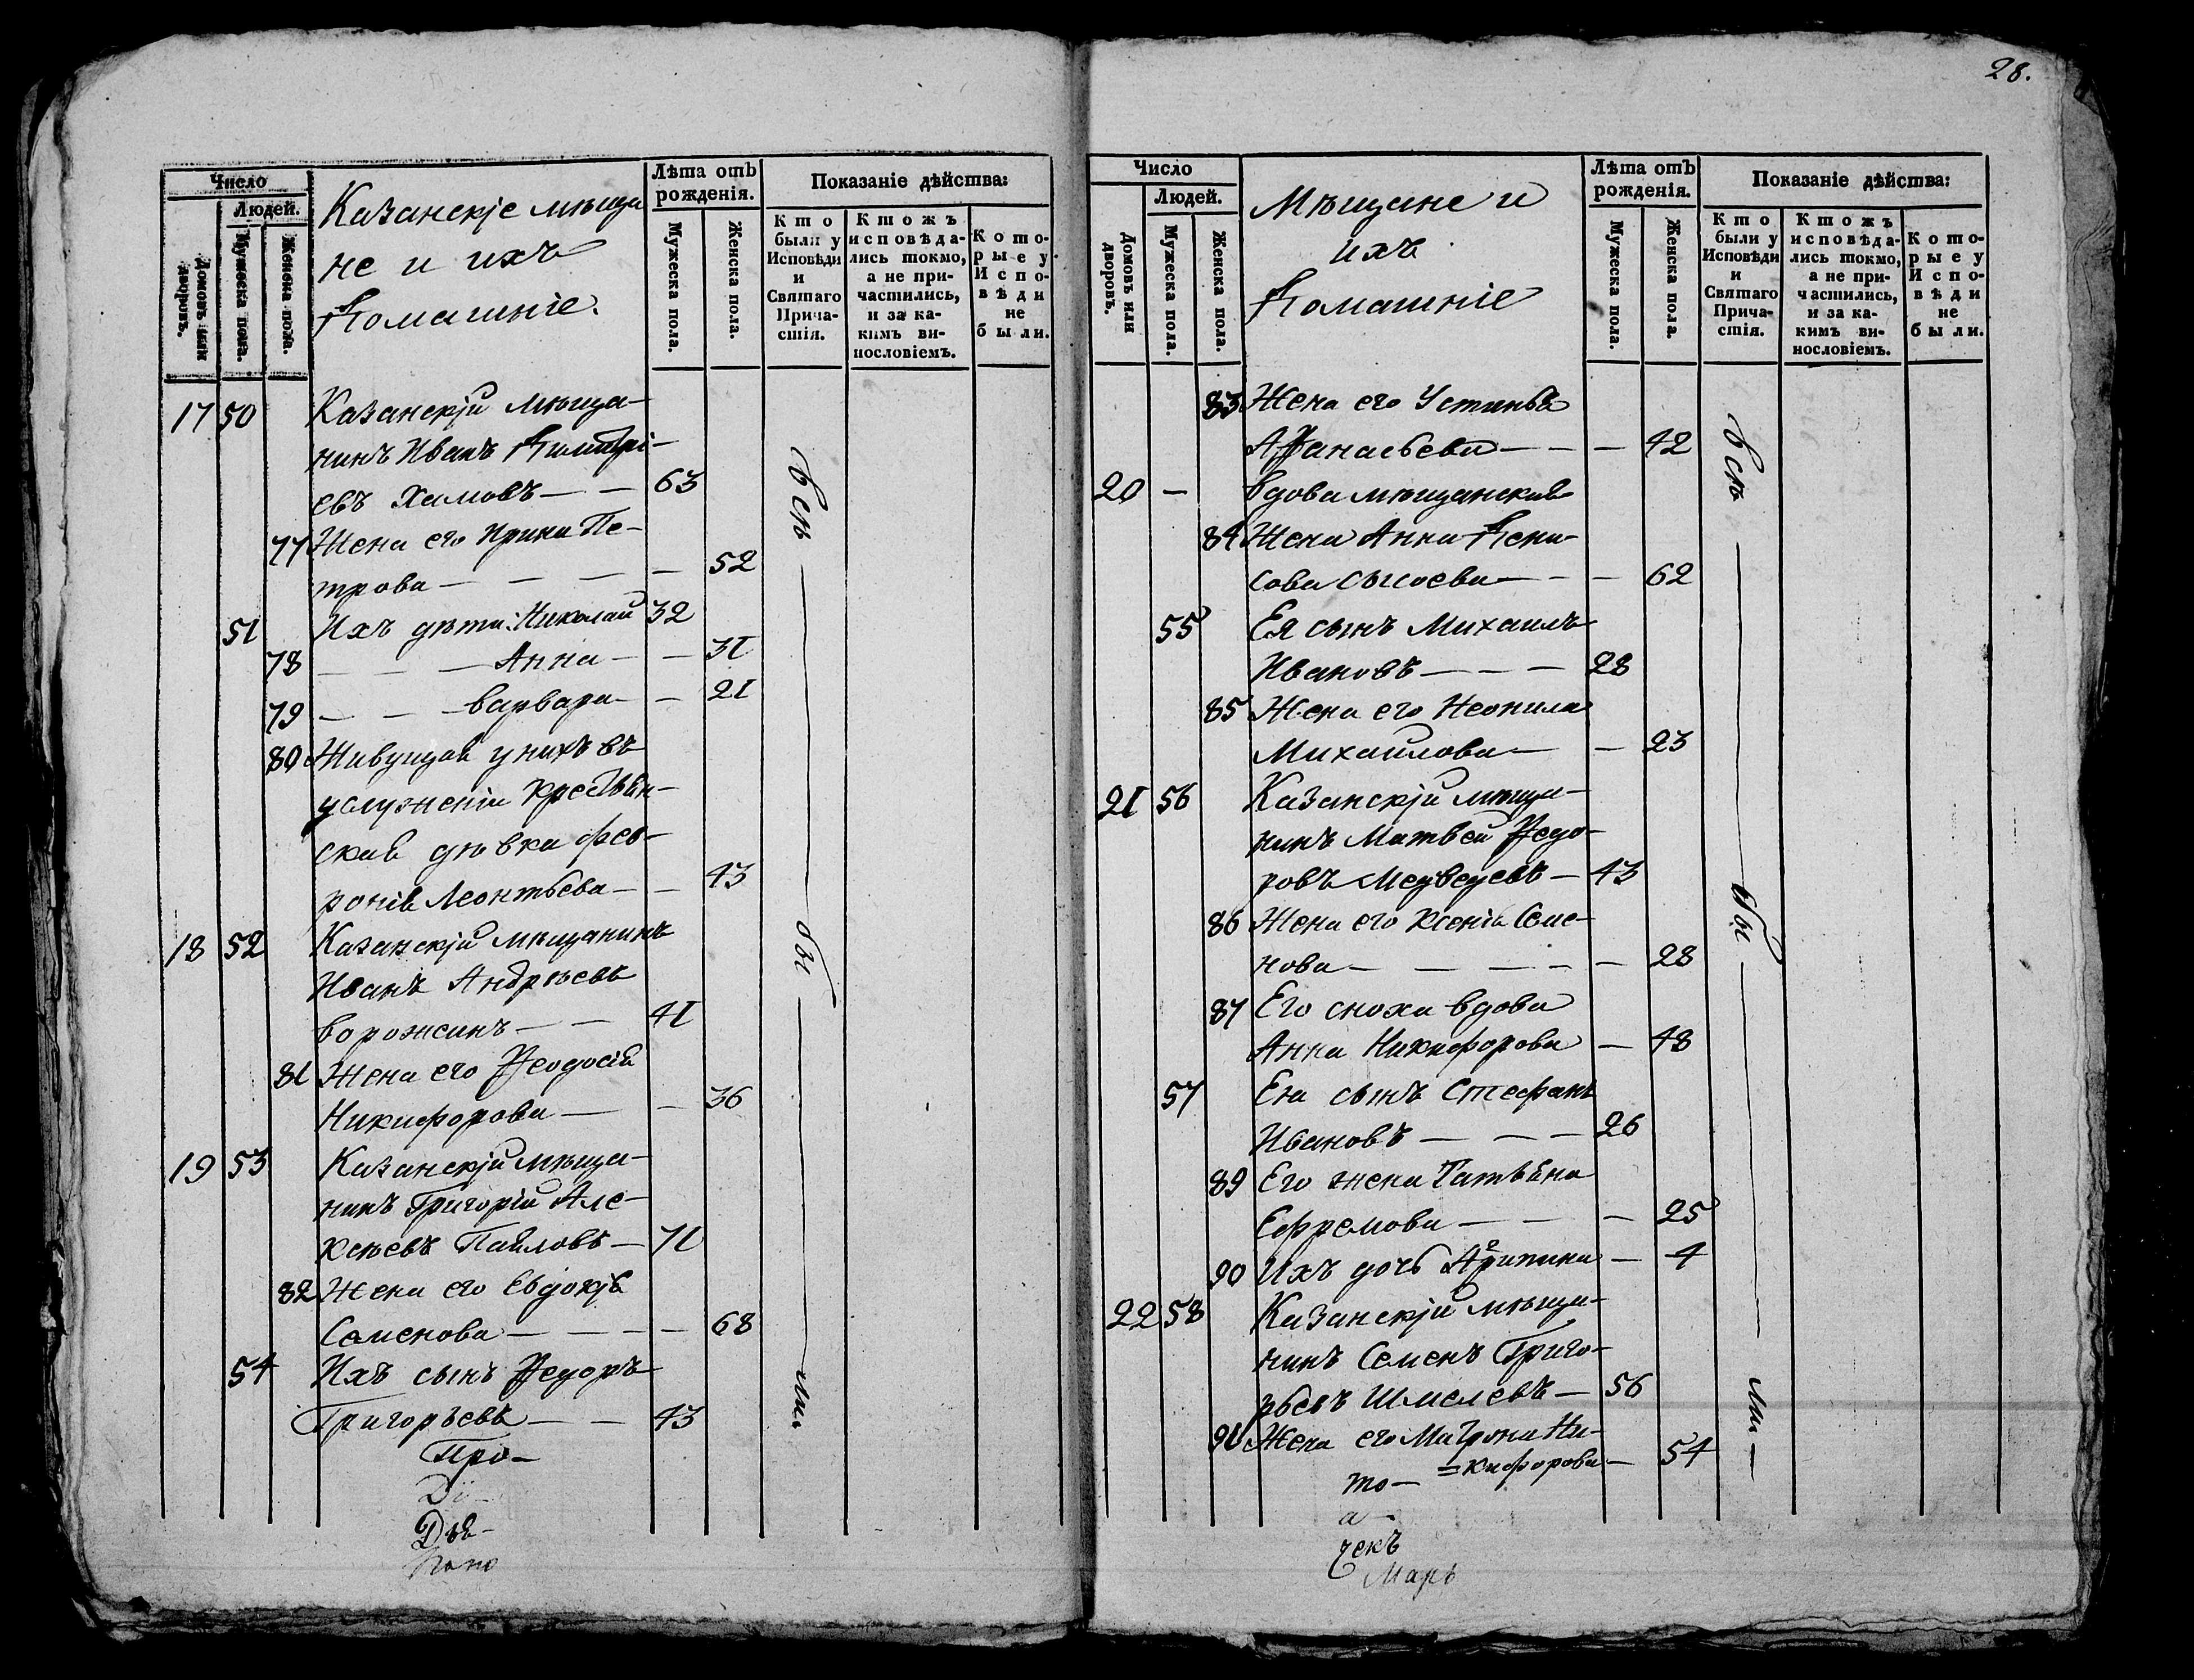 28.
Число
Людей.
Домовъ или дворовъ.
Мужеска пола.
Женска пола.
Казанскіе мѣща
не и ихъ
Домашніе.
Лѣта отъ рожденія.
Мужеска пола.
Женска пола.
Показаніе дѣйства:
Кто были у Исповѣди и Святаго Прича-стія.
Ктожъ исповѣда-лись токмо, а не при-частились, и за ка-кимъ ви-нословіемъ.
Кото-рые у Испо-вѣди не были.
17 50 Казанскій мѣща-
нинъ Иванъ Димитрі-
евъ Хамовъ — — 63
77 Жена его Ирина Пе-
трова — — — — 52
51 Ихъ дѣти: Николай 32
78 — — — Анна — — 31
79 — — — Варвара — — 21
80 Живущая у нихъ въ
услуженіи крестьян-
ская дѣвка Фев-
ронія Леонтьева — — 43
18 52 Казанскій мѣщанинъ
Иванъ Андрѣевъ
Ворожсинъ — — 41
81 Жена его Ѳеодосія
Никифорова — — 36
19 53 Казанскій мѣща-
нинъ Григорій Але-
ксѣевъ Павловъ — 71
82 Жена его Евдокія
Семенова — — — — 68
54 Ихъ сынъ Ѳедоръ
Григорьевъ — — 43
всѣ — бы — ли.
Про-
Дѣ-
Число
Людей.
Домовъ или дворовъ.
Мужеска пола.
Женска пола.
Мѣщане и
ихъ
Домашніе
Лѣта отъ рожденія.
Мужеска пола.
Женска пола.
Показаніе дѣйства:
Кто были у Исповѣди и Святаго Прича-стія.
Ктожъ исповѣда-лись токмо, а не при-частились, и за ка-кимъ ви-нословіемъ.
Кото-рые у Испо-вѣди не были.
83 Жена его Устинья
Аѳанасьева — — — 42
20 — Вдова мѣщанская
84 Жена Анна Дени-
сова Сысоева — — — 62
55 Ея сынъ Михаилъ
Ивановъ — — — 28
85 Жена его Неонила
Михайлова — — 23
21 56 Казанскій мѣща-
нинъ Матвей Ѳедо-
ровъ Медведевъ — 43
86 Жена его Ксенія Семе-
нова — — — — — 28
87 Его сноха вдова
Анна Никифорова — 48
57 Ея сынъ Стефанъ
Ивановъ — — — 26
89 Его жена Татьяна
Ефремова — — — 25
90 Ихъ дочь Агрипина — 4
22 58 Казанскій мѣща-
нинъ Семенъ Григо-
рьевъ Шмелевъ — 56
91 Жена его Матрона Ни-
=кифорова — 54
всѣ — бы — ли —
то-
а-
чекъ
Марь